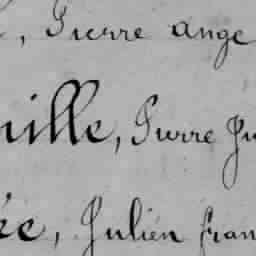 , Pierre ange
ille, Pierre Ju
ée, Julien fran